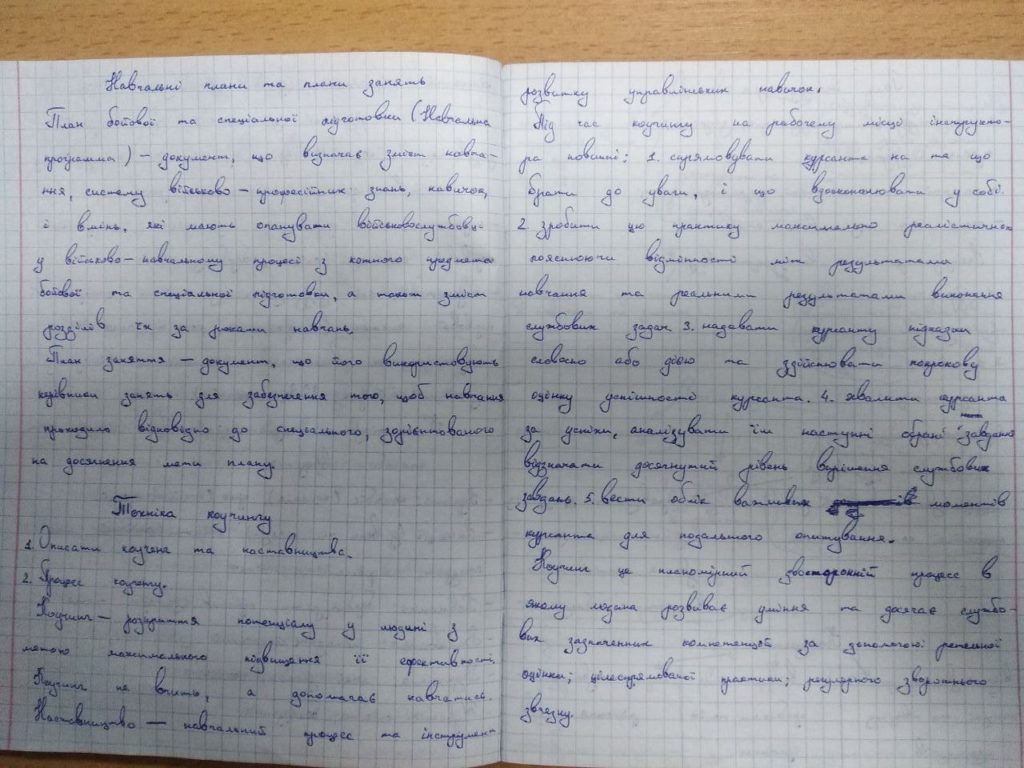 Навчальні плани та плани занять
План бойової та спеціальної підготовки (Навчальна
программа) – документ, що визначає зміст навча-
ння, систему військово – професійних знань, навичок,
і вмінь, які мають опанувати військовослужбовці
у військово – навчальному процесі з кожного предмета
бойової та спеціальної підготовки, а також зміст
розділів їх за роками навчань.
План заняття – документ, що його використовують
керівники занять для забезпечення того, щоб навчання
проходило відповідно до спеціального, зорієнтованого
на досягнення мети плану.
Техніка коучингу
1. Описати коучена та наставництво.
2. Процес коучингу.
Коучинг – розкриття потенціалу у людині з
метою максимального підвищення її ефективності.
Коучинг не вчить, а допомагає навчатись.
Наставництво – навчальний процес та інструмент
розвитку управлінських навичок.
Під час коучингу на робочему місці інструкто-
ра повинні: 1. спрямовувати курсанта на та що
брати до уваги, і що вдосконалювати у собі.
2. зробити цю практику максимально реалістичною
пояснюючи відмінності між результатами
навчання та реальними результатами виконання
службових задач. 3. надавати курсанту підказки
словесно або дією та здійснювати покрокову
оцінку успішності курсанта. 4. хвалити курсанта
за успіхи, аналізувати їм наступні обрані завдання
відзначати досягнутий рівень вирішення службових
завдань. 5. вести облік важливих моментів
курсанта для подального опитування.
Коучинг це планомірний двосторонній процес в
якому людина розвиває уміння та досягає службо-
вих зазначенних компетенцій за допомогою: ретельної
оцінки; цілеспрямованої практики; регулярного зворотнього
звязку.